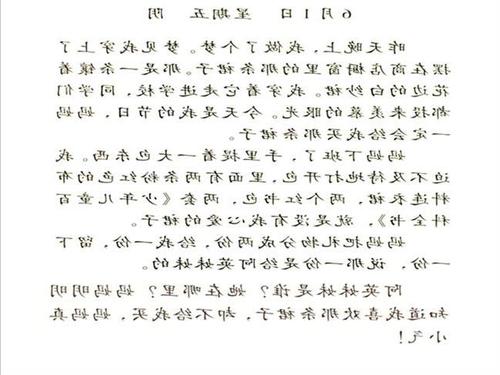 6月1日 星期五 阴
昨天晚上，我做了个梦。梦见我穿上了
摆在商店橱窗里的那条裙子。那是一条镶着
花边的白纱裙。我穿着它走进学校，同学们
都投来羡慕的眼光。今天是我的节日，妈妈
一定会给我买那条裙子。
妈妈下班了，手里提着一大包东西。我
迫不及待地打开包，里面有两条粉红色的布
料连衣裙，两个红书包，两套《少年儿童百
科全书》，就是没有我心爱的裙子。
妈妈把礼物分成两份，给我一份，留下
一份，说那一份是给阿英妹妹的。
阿英妹妹是谁？她在哪里？妈妈明明
知道我喜欢那条裙子，却不给我买，妈妈真
小气！